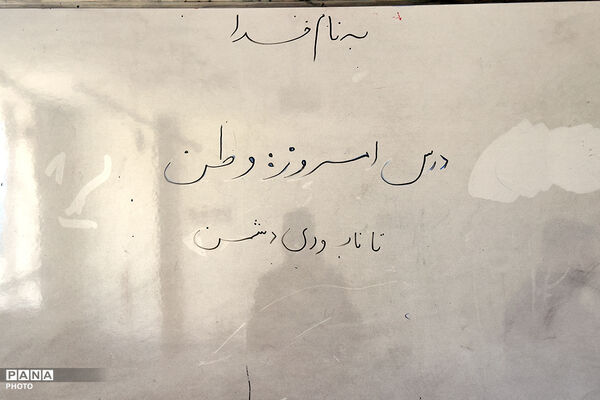 به نام خدا
درس امروز: وطن
تا نابودی دشمن
PANA
PHOTO